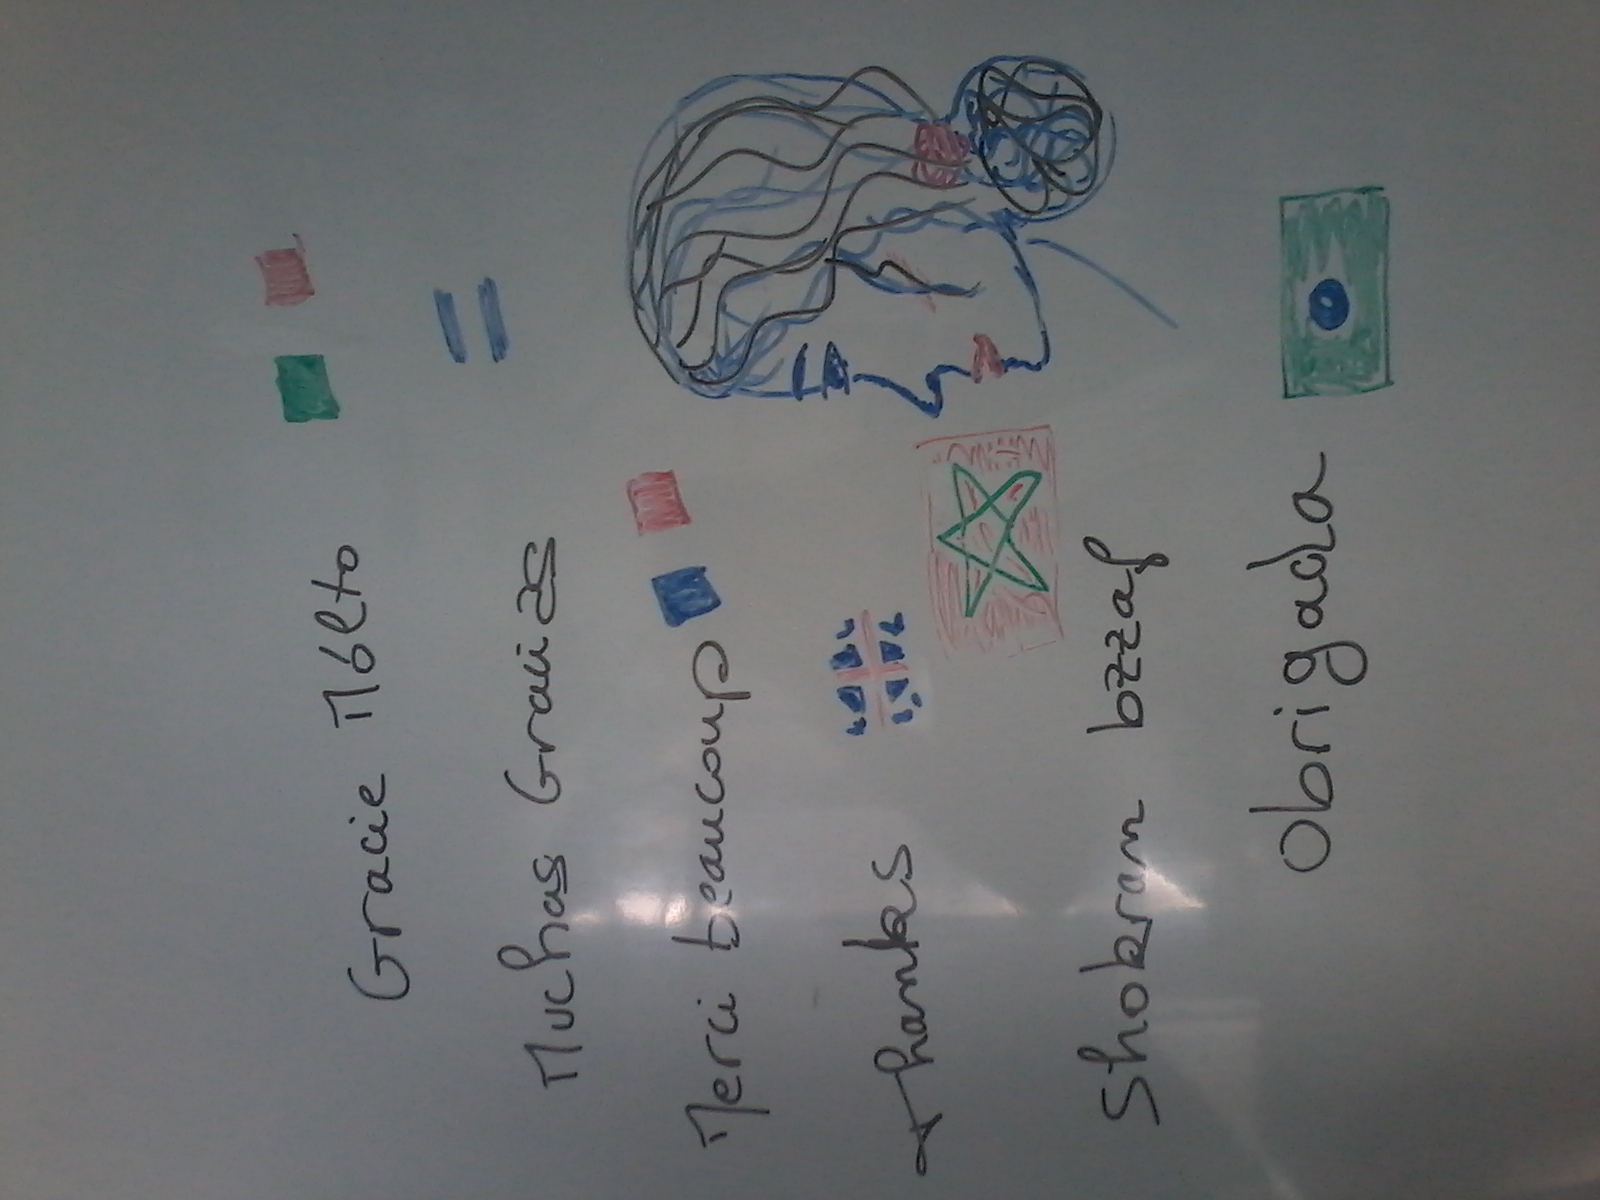 Gracie Mólto
Muchas Gracias
Merci beaucoup
thanks
Shokran bzzaf
Obrigada